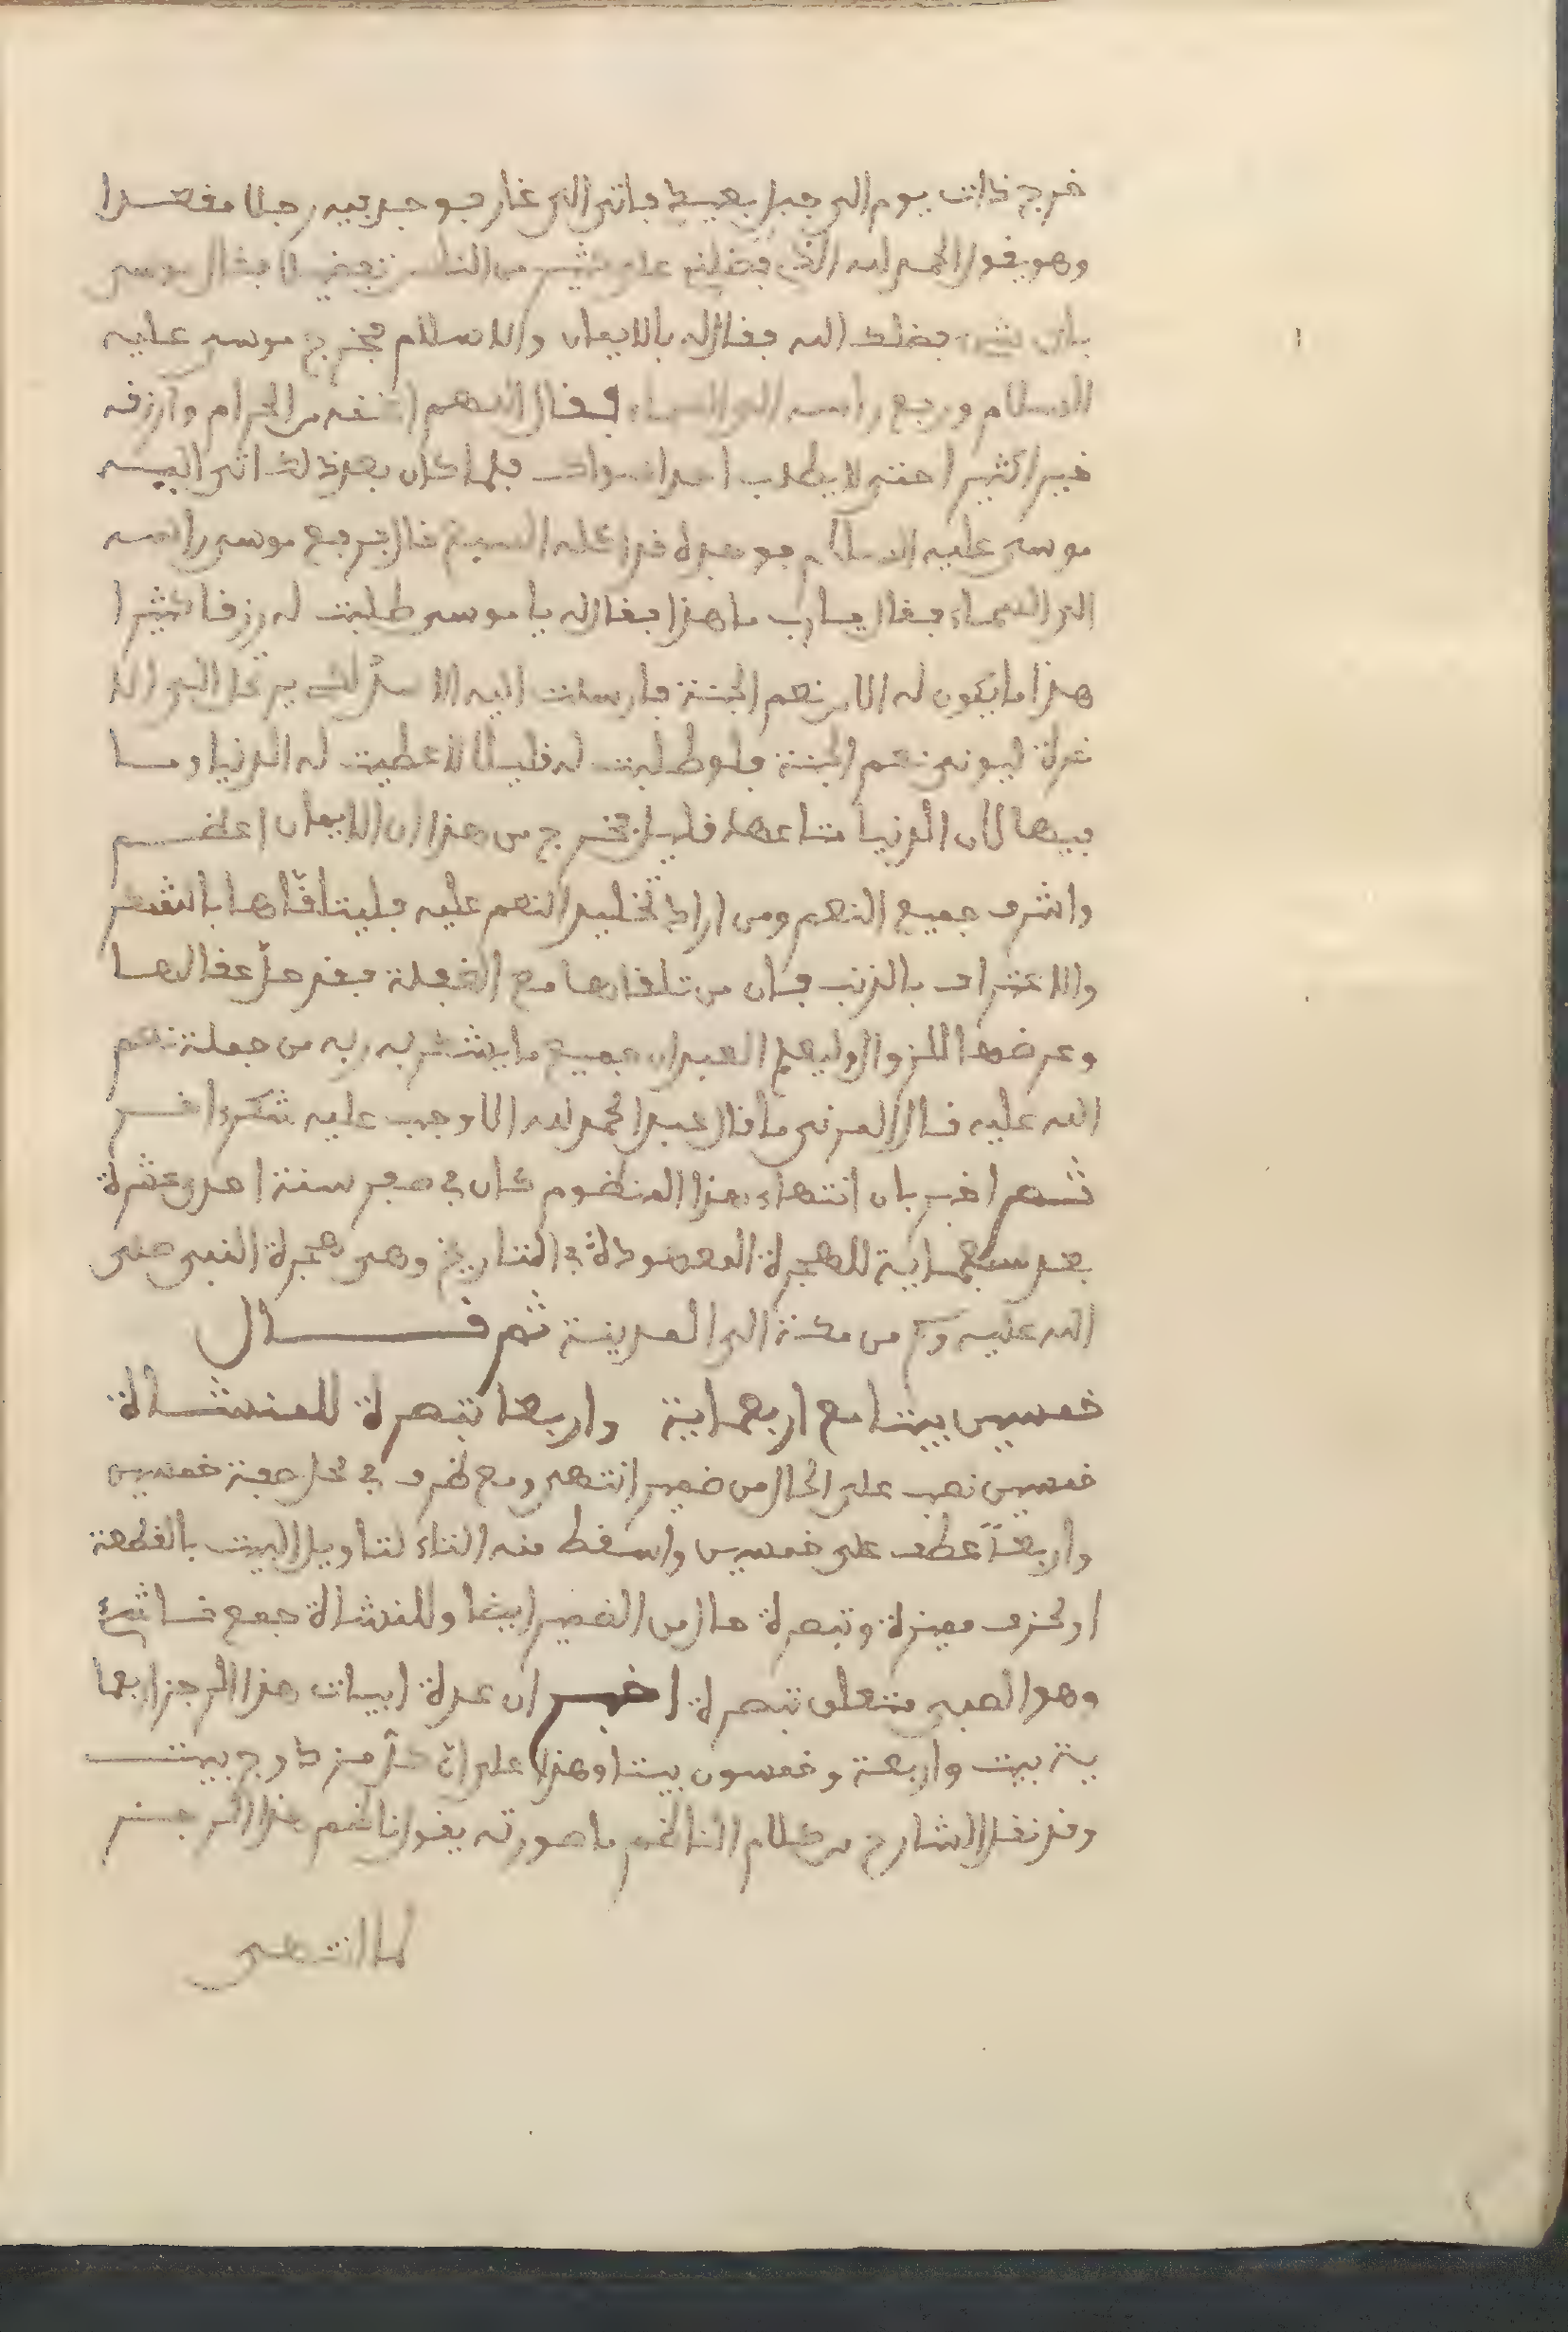 خرج ذات يوم الى جبل بعيد فاتى الى غار فوجد فيه رجلا مقعدا
وهو يقول الحمد لله الذي فضلني على كثير من الناس تفضيلا فقال موسى
باي شيء فضلك الله فقال له بالايمان والاسلام فخرج موسى عليه
السلام ورفع راسه الى السماء فقال اللهم من الحرام وارزقه
خيرا كثيرا حتى لا يطلب احدا سواك فلما كان بعد ذلك اتى اليه
موسى عليه السلام فوجده قد اكله السبع قال فرفع موسى راسه
الى السماء فقال يارب ما هذا فقال له يا موسى طلبت له رزقا كثيرا
هذا ما يكون له الا من نعم الجنة فارسلت اليه الاسد لكي يرحل الى الا
خرة ليوتى نعم الجنة فلو طلبت له قليلا لاعطيت له الدنيا وما
فيها لان الدنيا متاعها قليل فخرج من هذا ان الايمان اعظم
واشرف جميع النعم ومن اراد تخليد النعم عليه فليتلقاها بالشكر
والاعتراف بالذنب فان من تلقاها مع الغفلة فقد حل عقالها
وعرضها للزوال وليعلم العبد ان جميع ما يشكر به ربه من جملة نعم
الله عليه قال المزني ما قال عبد الحمد لله الا وجب عليه شكر اخر
ثم اخبر بان انتهاء هذا المنظوم كان في صفر سنة احدى عشرة
بعد سبعماية للهجرة المعهودة في التاريخ وهي هجرة النبي صلى
الله عليه وسلم من مكة الى المدينة ثم قال
خمسين بيتا مع اربعماية واربعا تبصرة للنشاة
خمسين نصب على الحال من ضمير انتهى ومع ظرف في محل صفة خمسين
واربعا عطف على خمسين واسقط منه التاء لتاويل البيت بالقطعة
او لحذف مميزه وتبصرة حال من الضمير ايضا وللنشاة جمع ناشئ
وهو الصبي متعلق تبصرة اخبر ان عدة ابيات هذا الرجز اربعما
ية بيت واربعة وخمسون بيتا وهذا على ان كل مزدوج بيت
وقد نقل الشارح من كلام الناظم ما صورته يقول ناظم هذا الرجز
لما انتهى